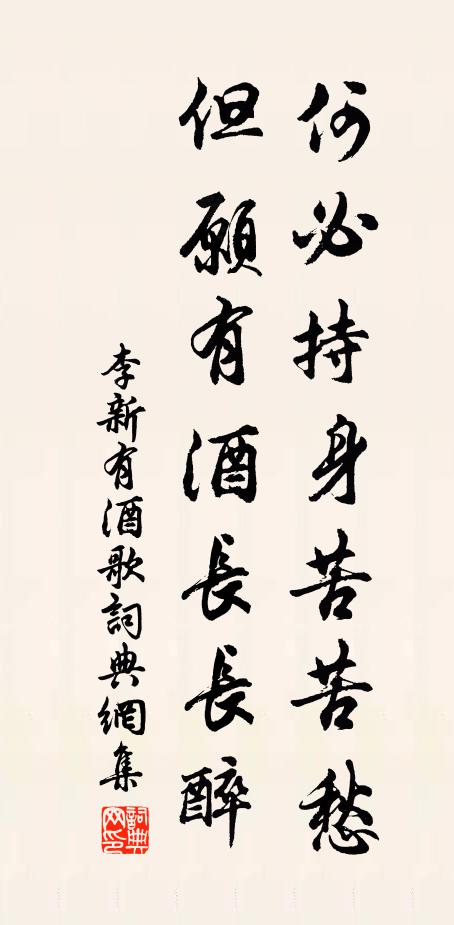 何必持身苦苦愁
但願有酒長長醉
李新有酒歌詞典網集
詞典网印